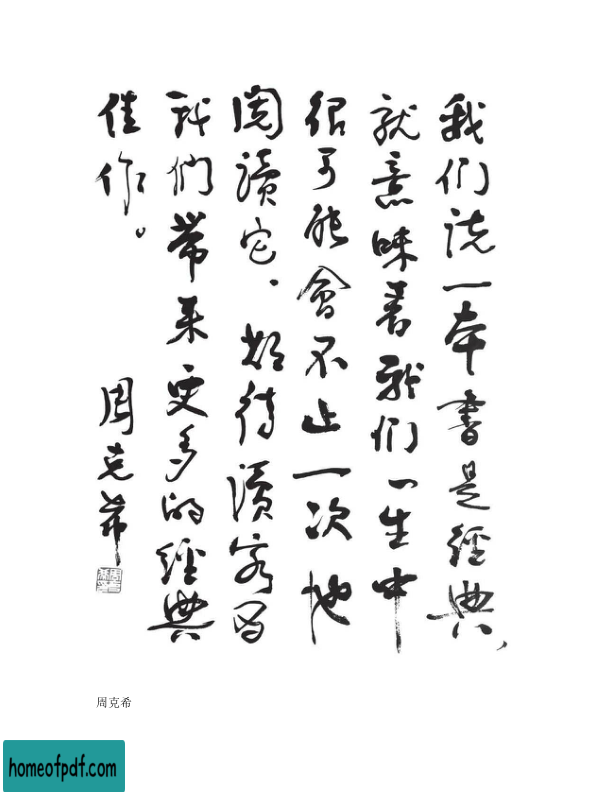 我们说一本書是經典，
就意味着我们一生中
很可能會不止一次地
閱讀它。期待讀客为
我們带来更多的經典
佳作。
周克希
周克希
homeofpdf.com